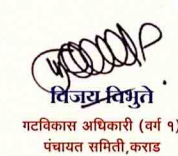 विजय विभुते
गटविकास अधिकारी (वर्ग १)
पंचायत समिती,कराड